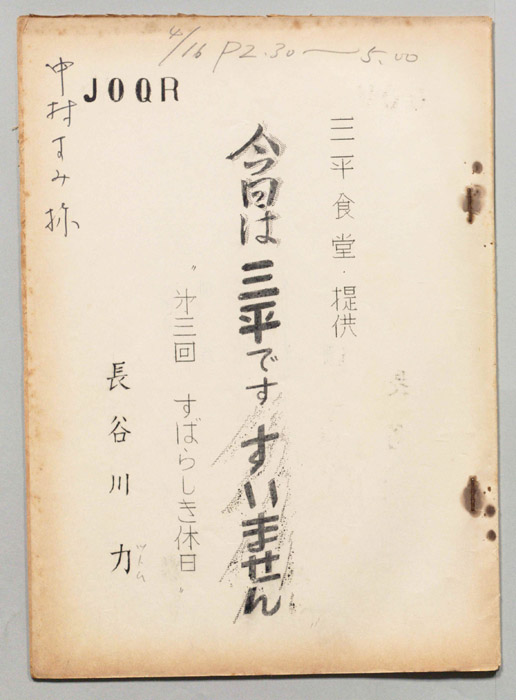 4/16 P2.30〜5.00
JOQR
三平食堂・提供
今日は三平です すいません
"第三回 すばらしき休日"
長谷川 力
ツトム
中村すみ